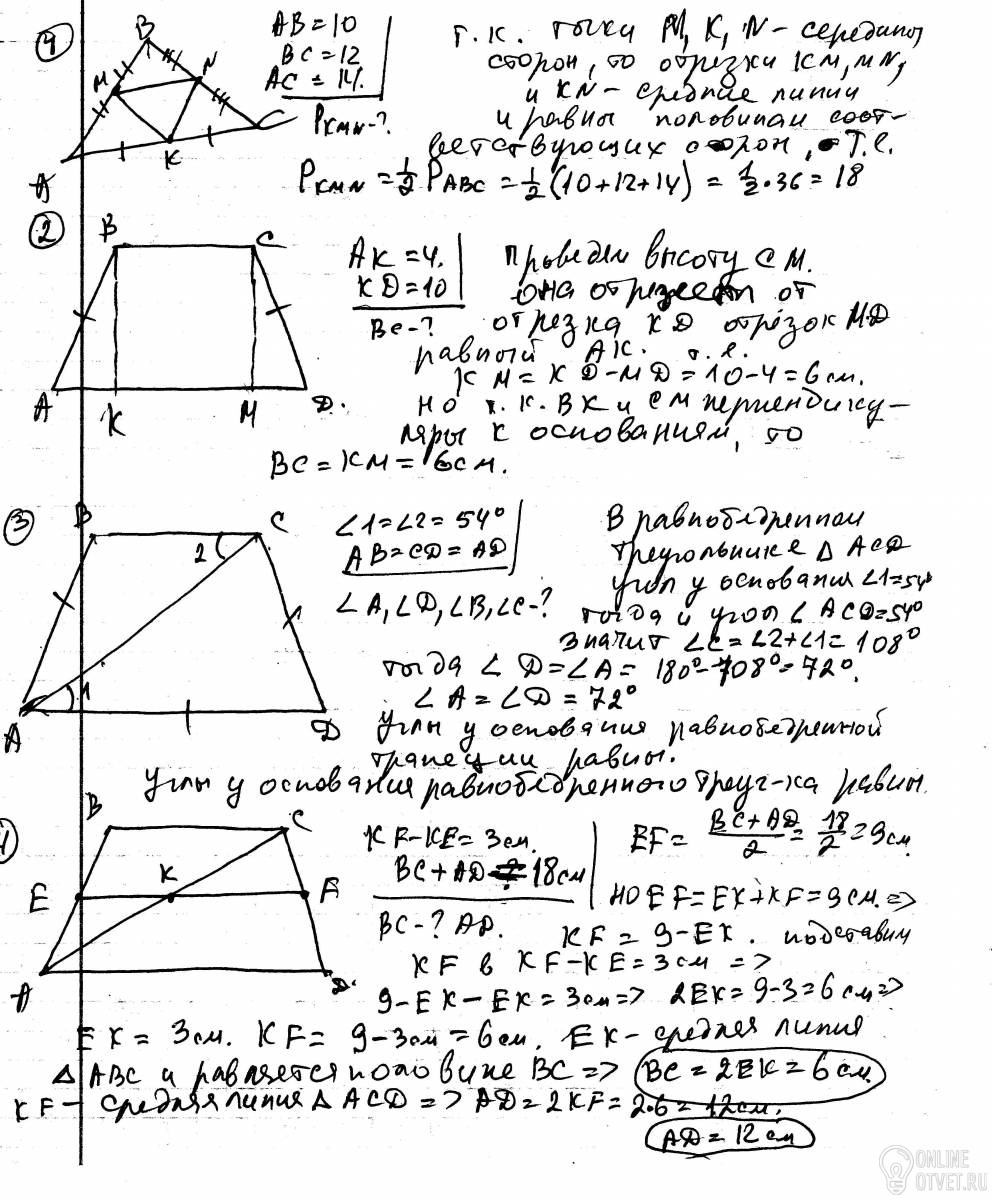 1
AB=10
BC=12
AC=14.
P_KMN-?
т.к. точки M, K, N - середины
сторон, то отрезки KM, MN,
и KN - средние линии
и равны половинам соот-
ветствующих сторон, т.е.
P_KMN = 1/2 P_ABC = 1/2 (10+12+14) = 1/2 · 36 = 18
B
M
N
A
K
C
2
B
C
A
K
M
D.
AK=4.
KD=10
BC-?
Проведем высоту CM.
она отрежет от
отрезка KD отрезок MD
равный AK. т.е.
KM = KD-MD = 10-4 = 6 см.
но т.к. BK и CM перпендику-
ляры к основаниям, то
BC = KM = 6 см.
3
B
C
2
1
A
D
∠1=∠2=54°
AB=CD=AD
∠A, ∠D, ∠B, ∠C-?
В равнобедренном
треугольнике △ACD
угол у основания ∠1=54°
тогда и угол ∠ACD=54°
значит ∠C=∠2+∠1=108°
тогда ∠D=∠A= 180°-108°=72°.
∠A=∠D=72°
углы у основания равнобедренной
трапеции равны.
Углы у основания равнобедренного треуг-ка равны.
B
C
E
K
F
A
D.
KF-KE=3см.
BC+AD = 18см
BC-? AD.
EF= (BC+AD)/2 = 18/2 = 9см.
но EF=EK+KF=9см. =>
KF = 9-EK. подставим
KF в KF-KE=3 см =>
9-EK-EK=3см=> 2EK=9-3=6 см=>
EK = 3см. KF= 9-3см=6см. EK-средняя линия
△ABC и равняется половине BC => BC=2EK=6 см.
KF - средняя линия △ACD => AD=2KF=2·6=12см.
AD=12 см
ONLINE
OTVET.RU